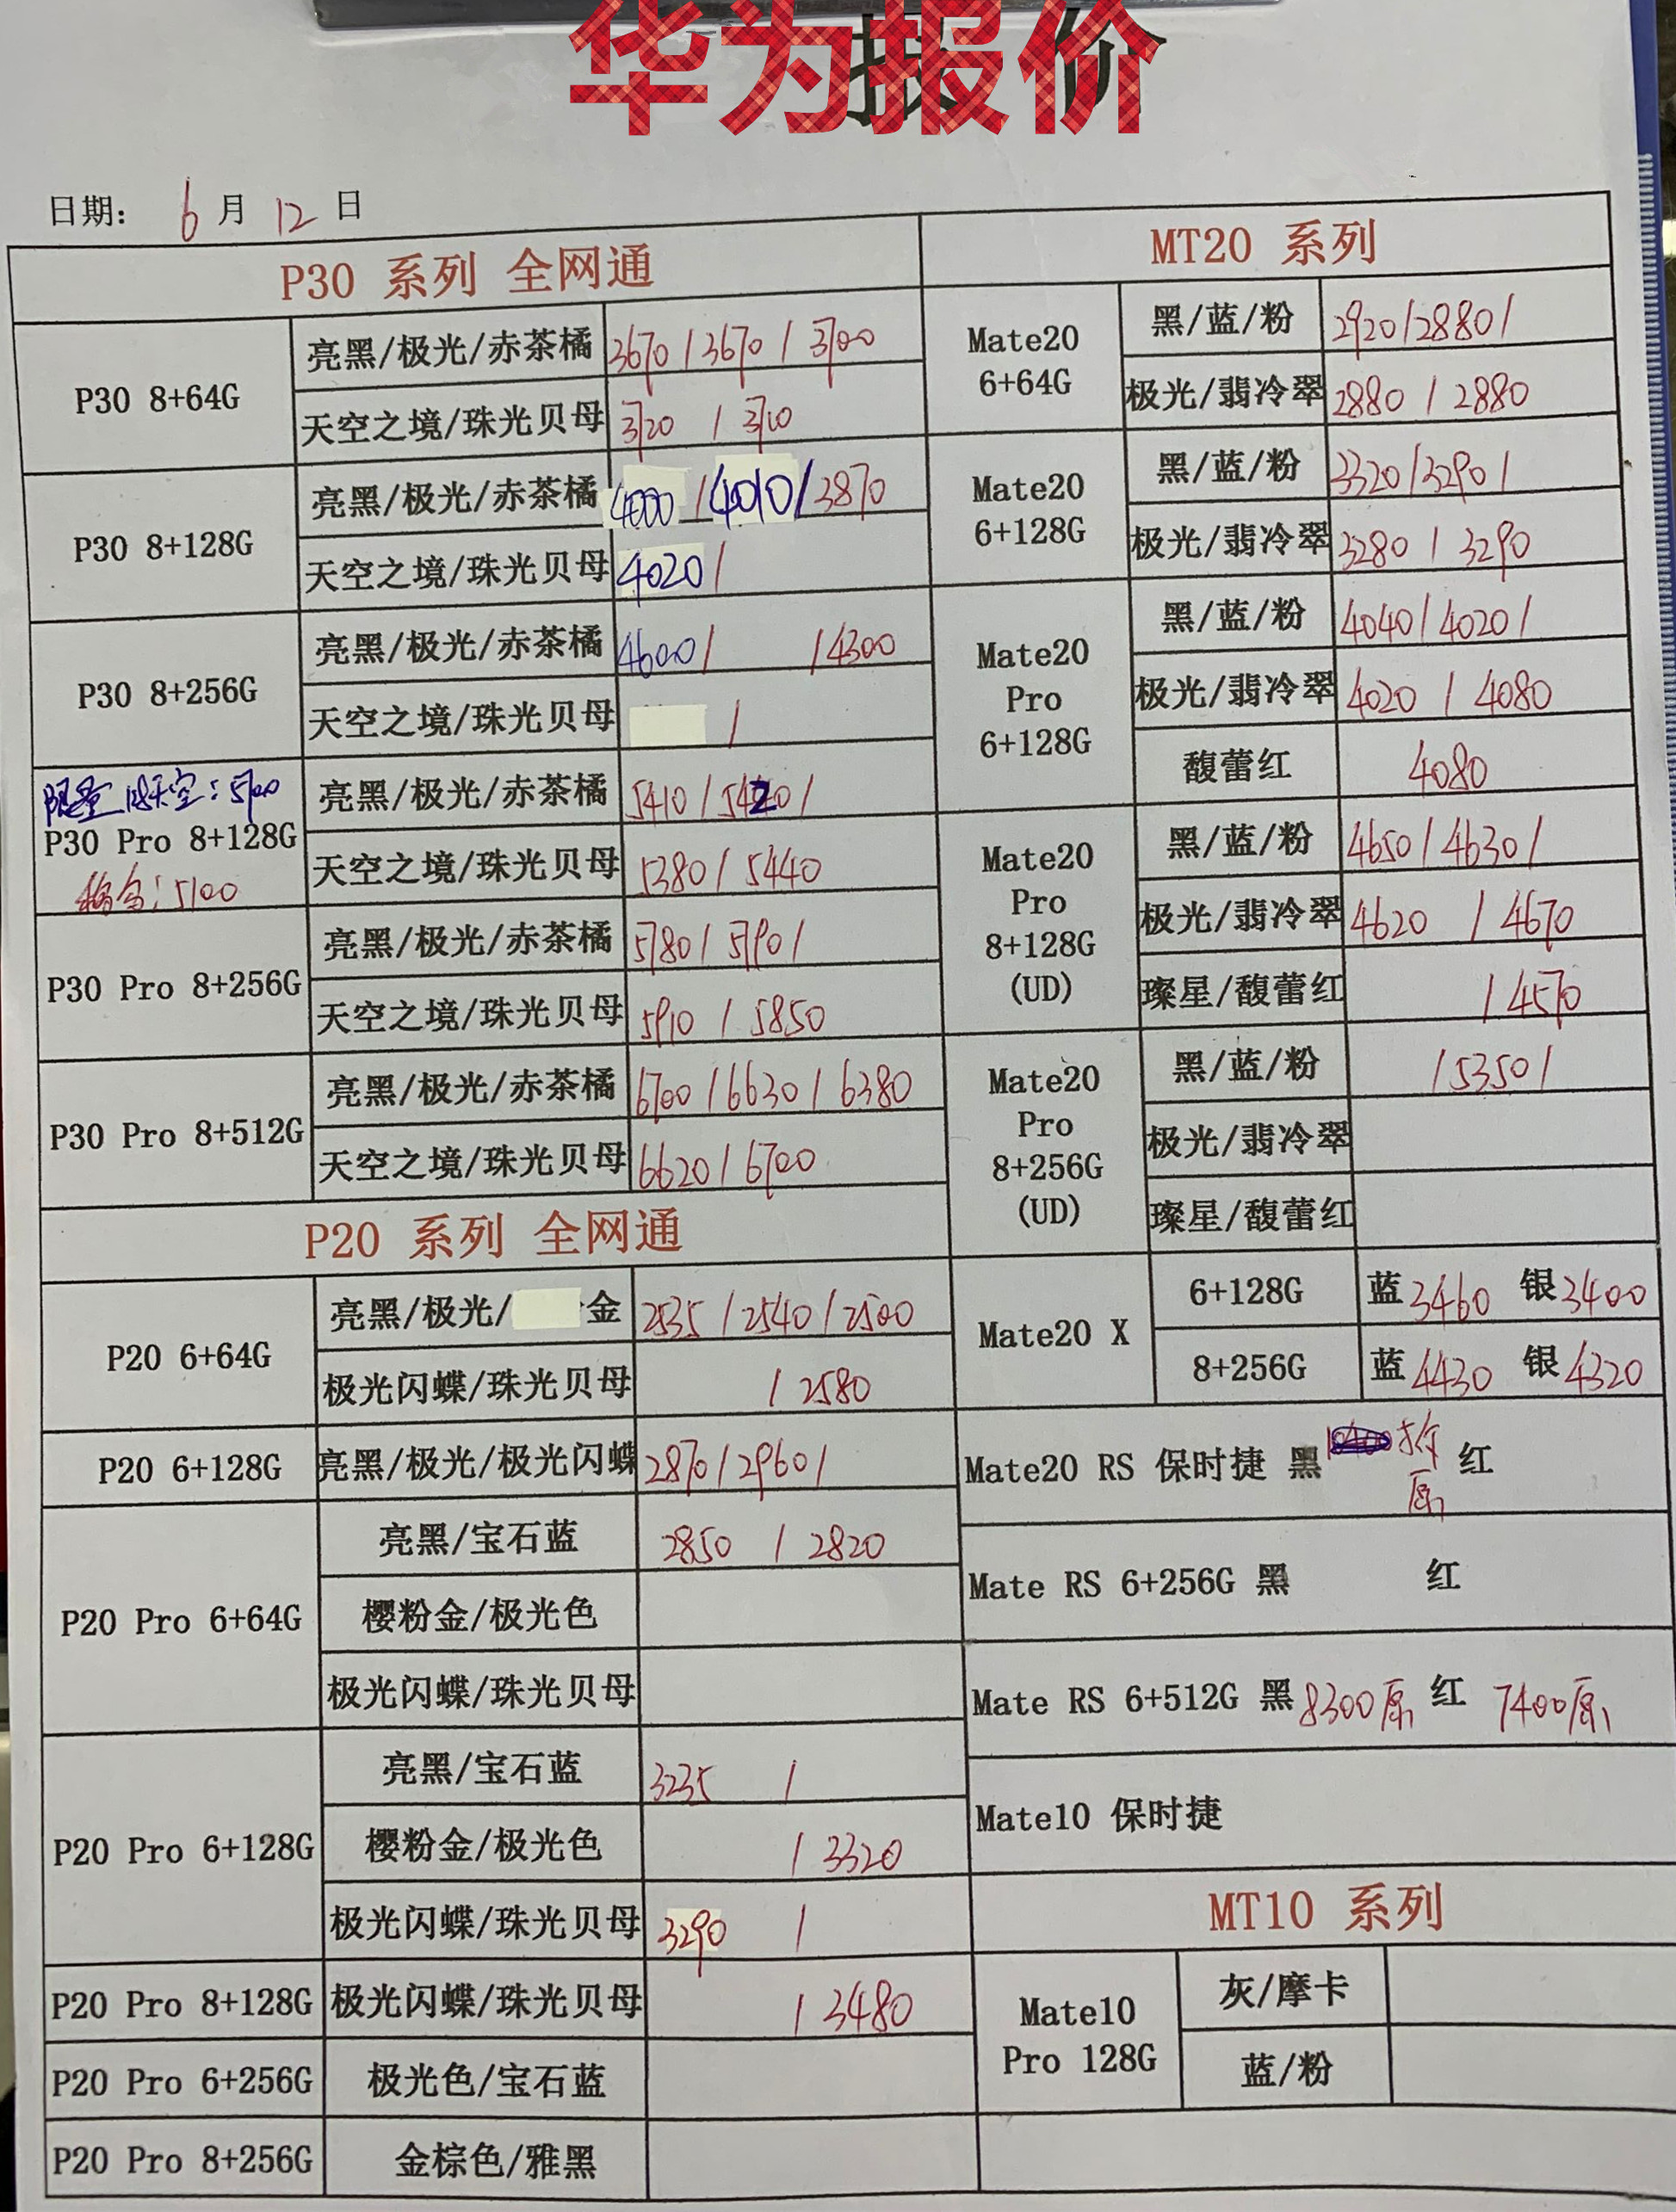 华为报价
日期： 6 月 12 日
P30 系列 全网通
P30 8+64G
亮黑/极光/赤茶橘 3670 / 3670 / 3700
天空之境/珠光贝母 3720 / 3710
P30 8+128G
亮黑/极光/赤茶橘 4000 / 4010 / 3870
天空之境/珠光贝母 4020 /
P30 8+256G
亮黑/极光/赤茶橘 4600 / / 4300
天空之境/珠光贝母 /
限量 天空：5700
P30 Pro 8+128G
橘色：5100
亮黑/极光/赤茶橘 5410 / 5420 /
天空之境/珠光贝母 5380 / 5440
P30 Pro 8+256G
亮黑/极光/赤茶橘 5780 / 5790 /
天空之境/珠光贝母 5910 / 5850
P30 Pro 8+512G
亮黑/极光/赤茶橘 6700 / 6630 / 6380
天空之境/珠光贝母 6620 / 6700
P20 系列 全网通
P20 6+64G
亮黑/极光/ 金 2535 / 2540 / 2500
极光闪蝶/珠光贝母 / 2580
P20 6+128G
亮黑/极光/极光闪蝶 2870 / 2960 /
P20 Pro 6+64G
亮黑/宝石蓝 2850 / 2820
樱粉金/极光色
极光闪蝶/珠光贝母
P20 Pro 6+128G
亮黑/宝石蓝 3235 /
樱粉金/极光色 / 3320
极光闪蝶/珠光贝母 3290 /
P20 Pro 8+128G 极光闪蝶/珠光贝母 / 3480
P20 Pro 6+256G 极光色/宝石蓝
P20 Pro 8+256G 金棕色/雅黑
MT20 系列
Mate20
6+64G
黑/蓝/粉 2920 / 2880 /
极光/翡冷翠 2880 / 2880
Mate20
6+128G
黑/蓝/粉 3320 / 3290 /
极光/翡冷翠 3280 / 3290
Mate20
Pro
6+128G
黑/蓝/粉 4040 / 4020 /
极光/翡冷翠 4020 / 4080
馥蕾红 4080
Mate20
Pro
8+128G
(UD)
黑/蓝/粉 4650 / 4630 /
极光/翡冷翠 4620 / 4670
璨星/馥蕾红 / 4570
Mate20
Pro
8+256G
(UD)
黑/蓝/粉 / 5350 /
极光/翡冷翠
璨星/馥蕾红
Mate20 X
6+128G 蓝 3460 银 3400
8+256G 蓝 4430 银 4320
Mate20 RS 保时捷 黑 红
Mate RS 6+256G 黑 红
Mate RS 6+512G 黑 8300原 红 7400原
Mate10 保时捷
MT10 系列
Mate10
Pro 128G
灰/摩卡
蓝/粉